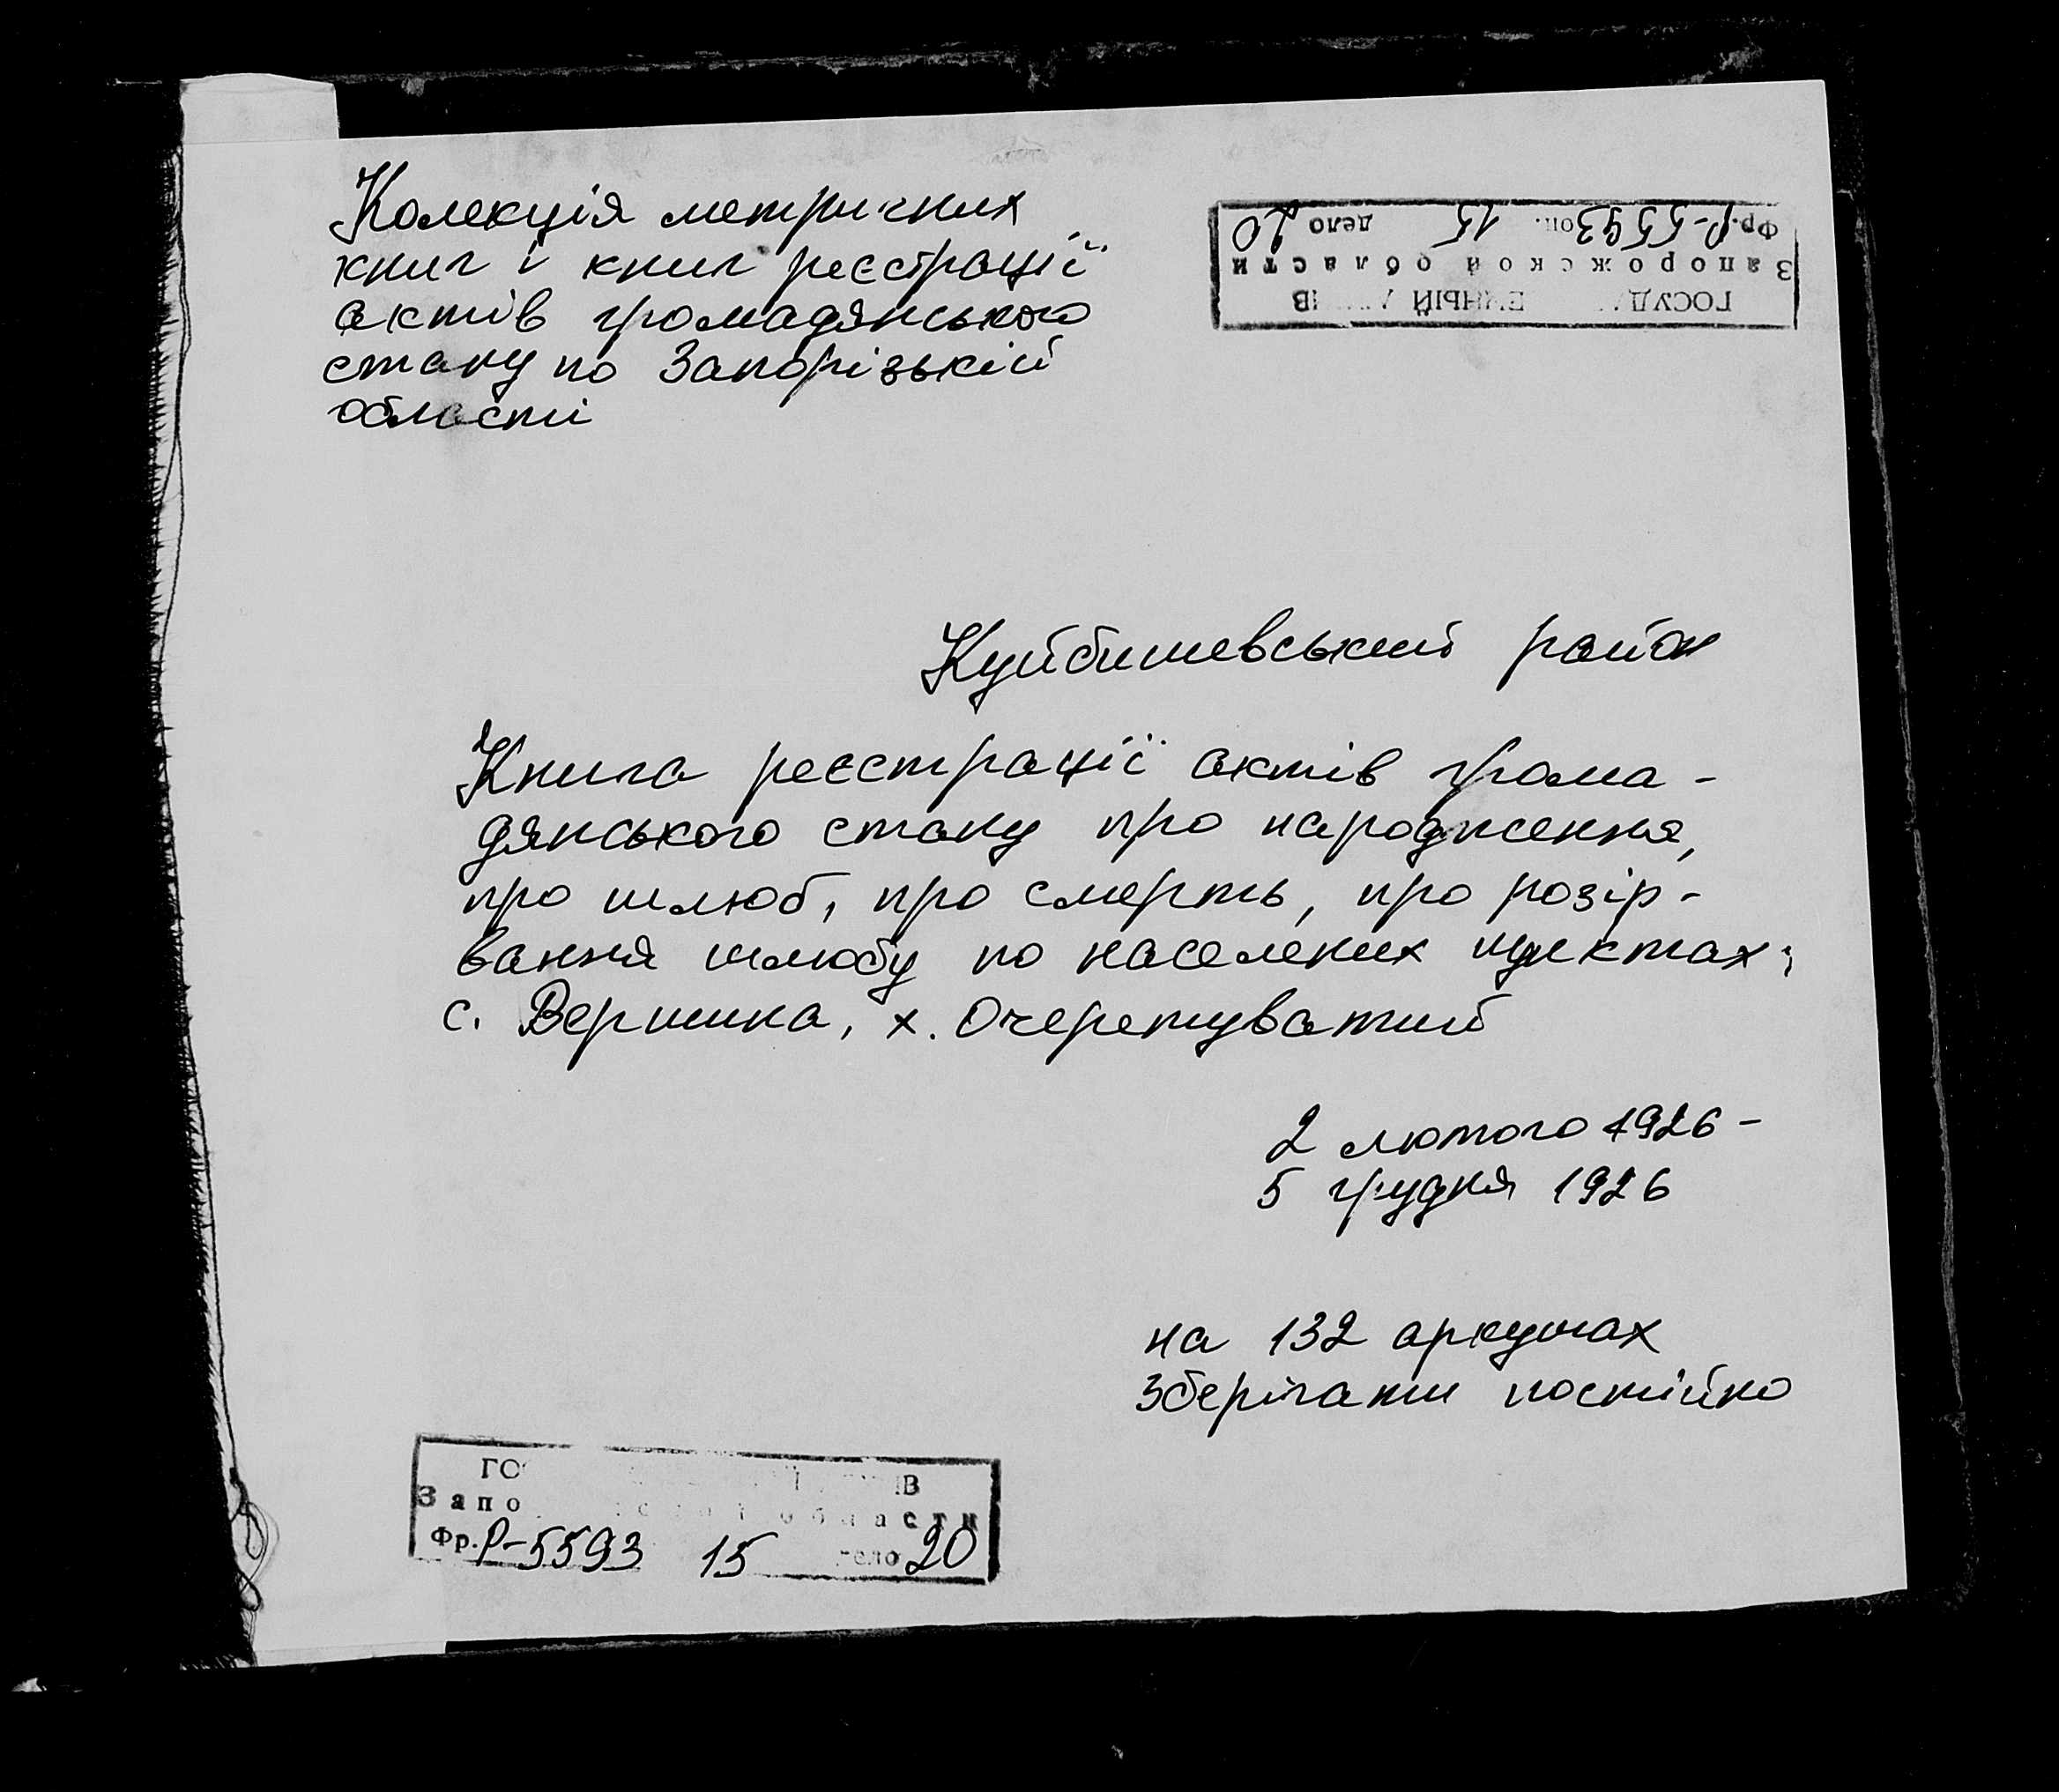 Колекція метричних
книг і книг реєстрації
актів громадянського
стану по Запорізькій
області
Фр. Р-5593 оп. 15 дело 20
Запорожской области
Куйбишевський район
Книга реєстрації актів грома-
дянського стану про народження,
про шлюб, про смерть, про розір-
вання шлюбу по населених пунктах:
с. Вершина, х. Очеретуватий
2 лютого 1926 -
5 грудня 1926
на 132 аркушах
зберігати постійно
области
Фр. Р-5593 15 дело 20